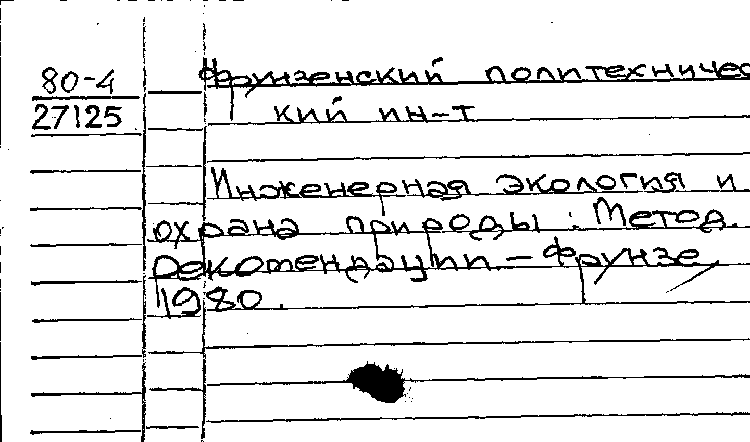 80-4 Фрунзенский политехничес
27125 кий ин-т
Инженерная экология и
охрана природы : Метод.
рекомендации. – Фрунзе,
1980.